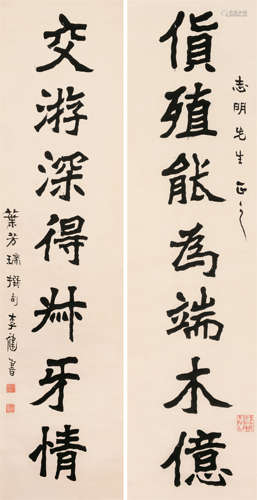 志明先生正之
貨殖能為端木億
交游深得叔牙情
葉芳瑞撰句李鶴書